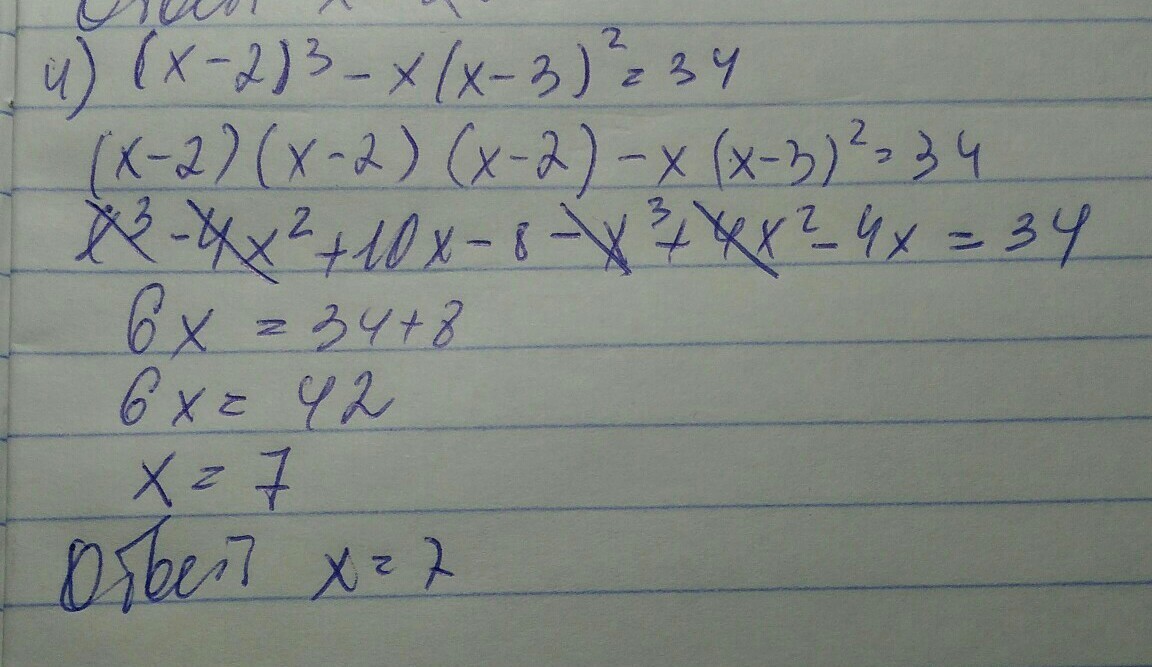 Ответ x
4) (x-2)³ - x(x-3)² = 34
(x-2)(x-2)(x-2) - x(x-3)² = 34
x³ - 4x² + 10x - 8 - x³ + 4x² - 4x = 34
6x = 34+8
6x = 42
x = 7
Ответ x = 7